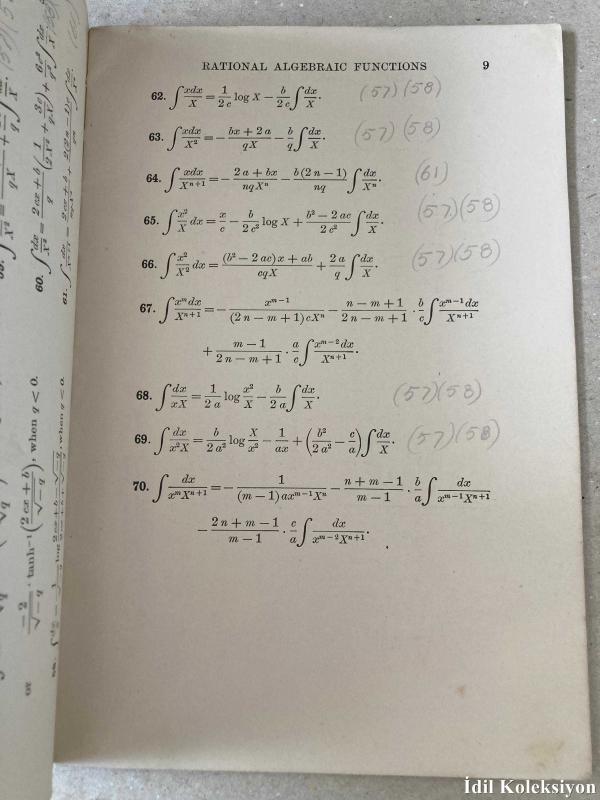 RATIONAL ALGEBRAIC FUNCTIONS 9
62. ∫ xdx/X = 1/(2 c) log X − b/(2 c) ∫ dx/X. (57) (58)
63. ∫ xdx/X² = − (bx + 2 a)/(qX) − b/q ∫ dx/X. (57) (58)
64. ∫ xdx/Xⁿ⁺¹ = − (2 a + bx)/(nqXⁿ) − b(2 n − 1)/(nq) ∫ dx/Xⁿ. (61)
65. ∫ x²/X dx = x/c − b/(2 c²) log X + (b² − 2 ac)/(2 c²) ∫ dx/X. (57) (58)
66. ∫ x²/X² dx = ((b² − 2 ac) x + ab)/(cqX) + 2 a/q ∫ dx/X. (57) (58)
67. ∫ xᵐdx/Xⁿ⁺¹ = − xᵐ⁻¹/((2 n − m + 1) cXⁿ) − (n − m + 1)/(2 n − m + 1) · b/c ∫ xᵐ⁻¹dx/Xⁿ⁺¹
+ (m − 1)/(2 n − m + 1) · a/c ∫ xᵐ⁻²dx/Xⁿ⁺¹.
68. ∫ dx/(xX) = 1/(2 a) log x²/X − b/(2 a) ∫ dx/X. (57) (58)
69. ∫ dx/(x²X) = b/(2 a²) log X/x² − 1/(ax) + (b²/(2 a²) − c/a) ∫ dx/X. (57) (58)
70. ∫ dx/(xᵐXⁿ⁺¹) = − 1/((m − 1) axᵐ⁻¹Xⁿ) − (n + m − 1)/(m − 1) · b/a ∫ dx/(xᵐ⁻¹Xⁿ⁺¹)
− (2 n + m − 1)/(m − 1) · c/a ∫ dx/(xᵐ⁻²Xⁿ⁺¹).
60.
61.
tanh⁻¹ (2 cx + b/√−q), when q < 0.
when q < 0.
İdil Koleksiyon